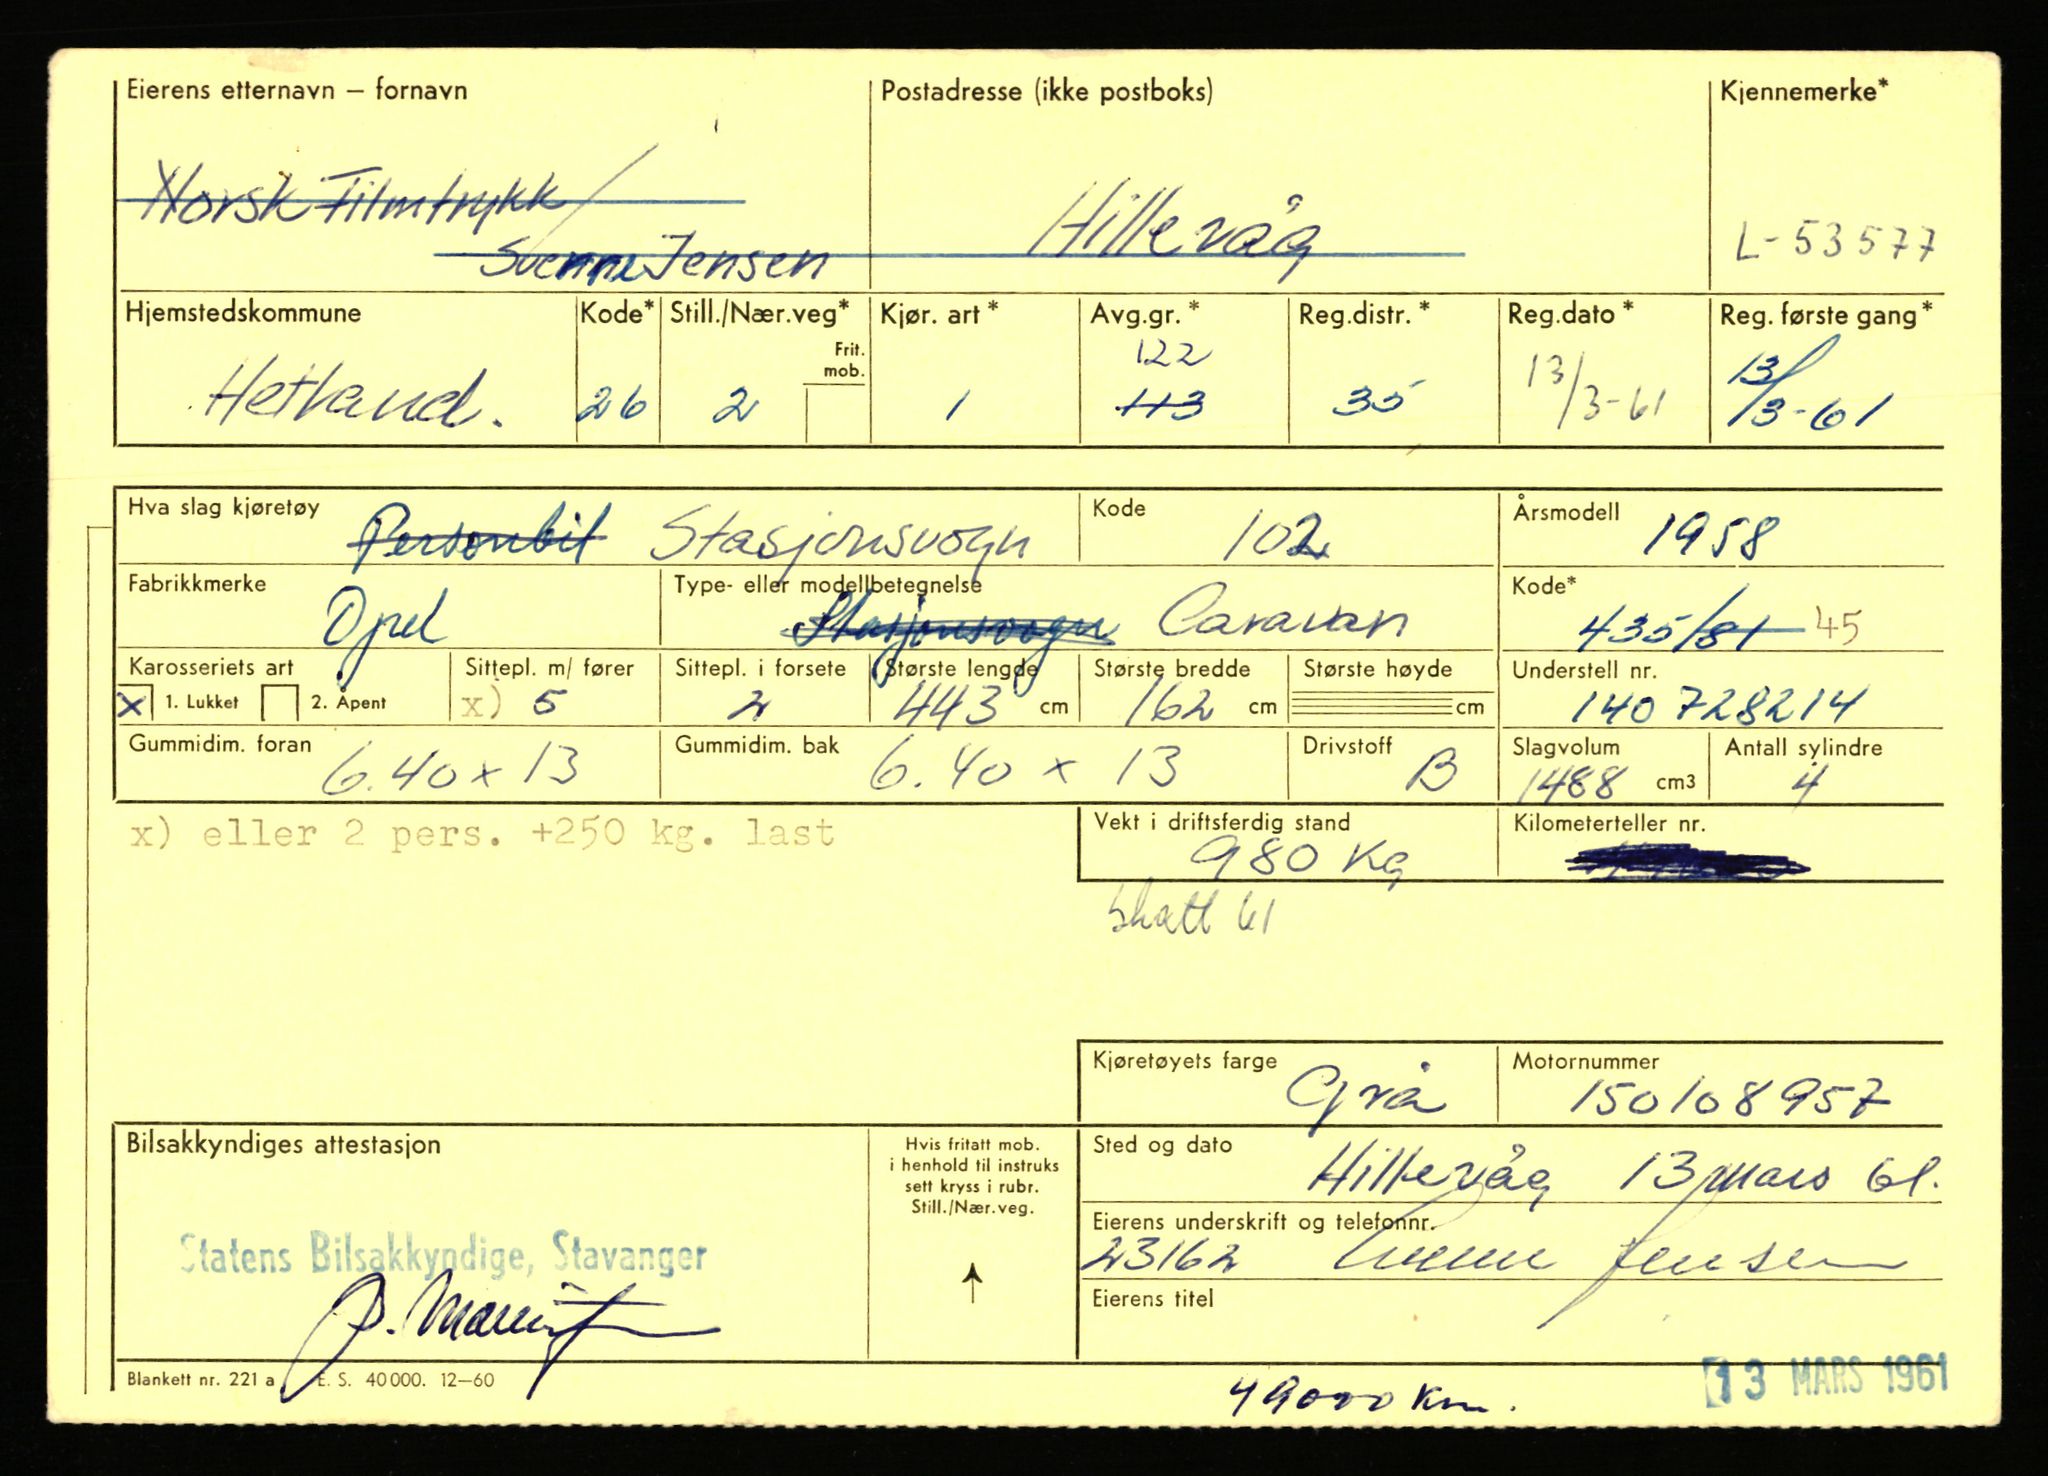 Eierens etternavn – fornavn Postadresse (ikke postboks) Kjennemerke*
Norsk Filmtrykk/
Svenne Jensen Hillevåg L-53577
Hjemstedskommune Kode* Still./Nær.veg* Kjør. art* Avg.gr.* Reg.distr.* Reg.dato* Reg. første gang*
Frit. mob. 122
Hetland. 26 2 1 113 35 13/3-61 13/3-61
Hva slag kjøretøy Personbil Stasjonsvogn Kode 102 Årsmodell 1958
Fabrikkmerke Opel Type- eller modellbetegnelse Stasjonsvogn Caravan Kode* 435/81 45
Karosseriets art Sittepl. m/ fører Sittepl. i forsete Største lengde Største bredde Største høyde Understell nr.
x 1. Lukket 2. Åpent x) 5 2 443 cm 162 cm cm 140 728214
Gummidim. foran 6.40 x 13 Gummidim. bak 6.40 x 13 Drivstoff B Slagvolum 1488 cm3 Antall sylindre 4
x) eller 2 pers. +250 kg. last Vekt i driftsferdig stand 980 Kg Kilometerteller nr.
Skatt 61
Kjøretøyets farge Grå Motornummer 150108957
Bilsakkyndiges attestasjon
Hvis fritatt mob.
i henhold til instruks
sett kryss i rubr.
Still./Nær.veg.
Sted og dato Hillevåg 13 mars 61.
Eierens underskrift og telefonnr.
23162 Svenne Jensen
Statens Bilsakkyndige, Stavanger
Eierens titel
Blankett nr. 221 a E. S. 40000. 12–60
49000 Km.
13 MARS 1961